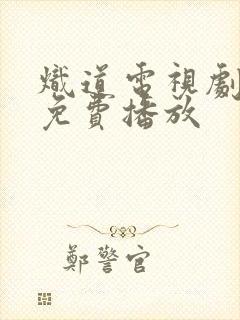 熾道電視劇
免費播放
鄭警官